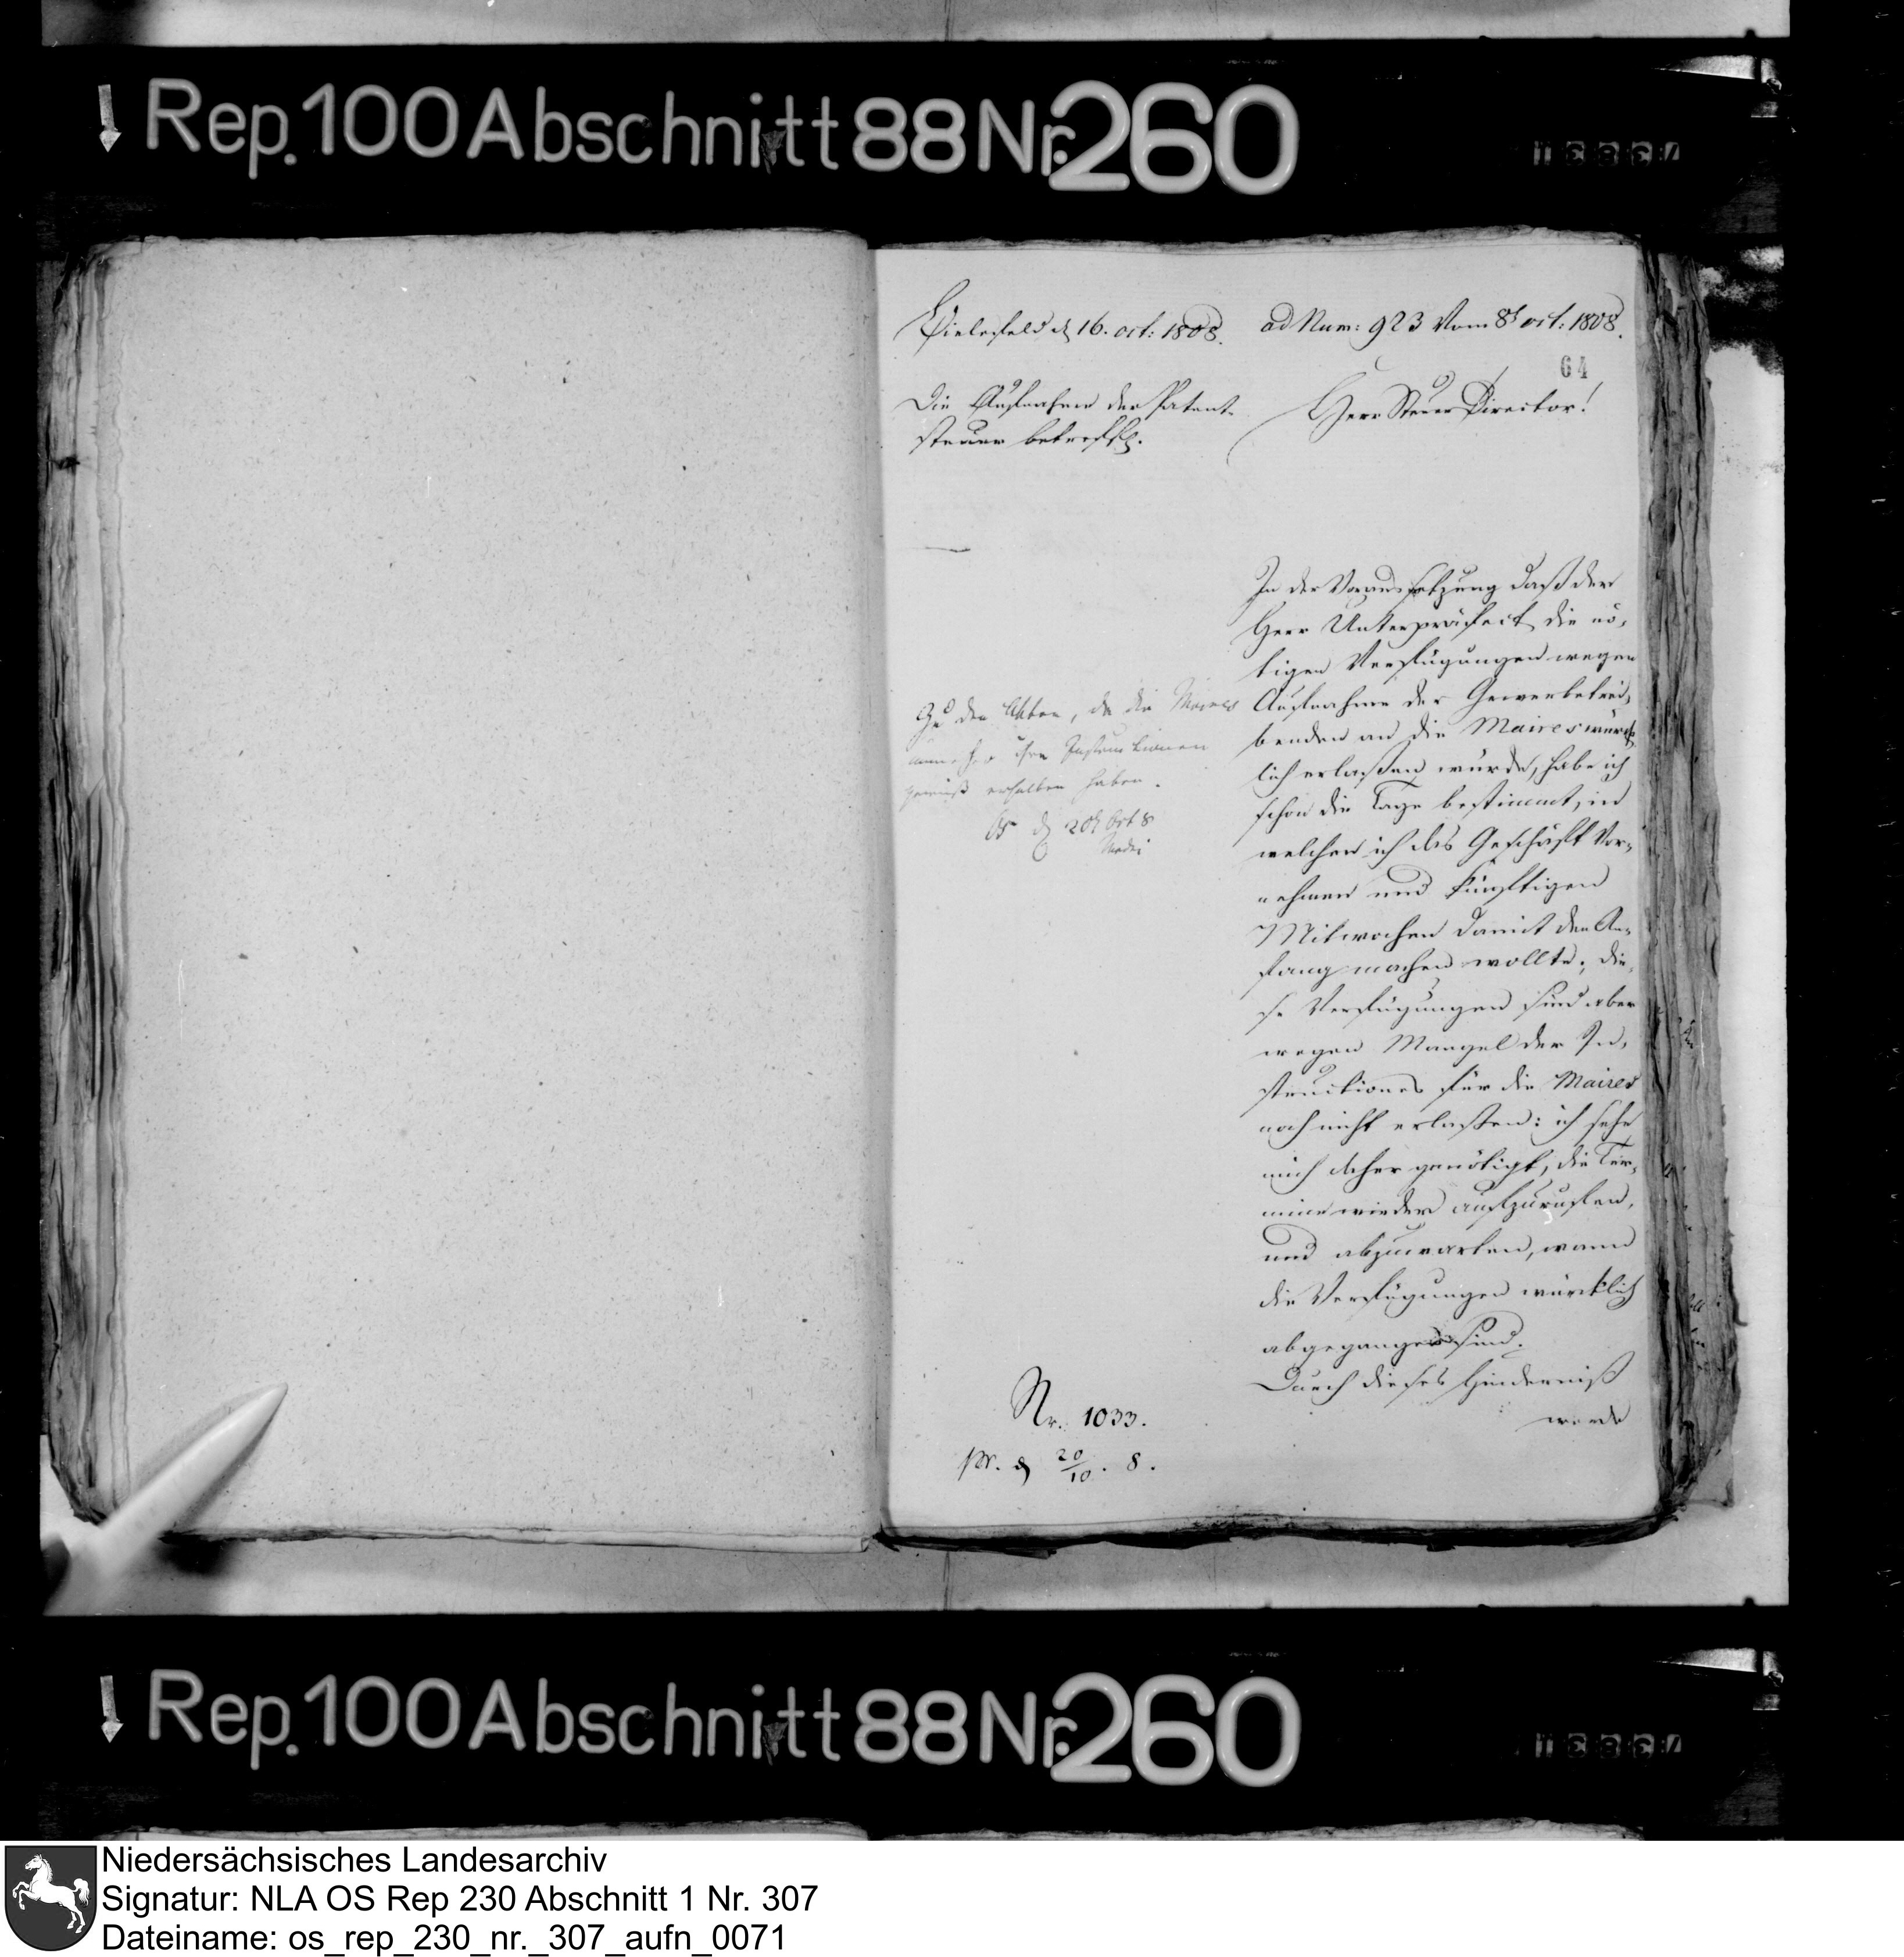 Rep. 100 Abschnitt 88 Nr. 260
Bielefeld d 16. oct: 1808.
ad Num: 923 Vom 8t oct: 1808.
64
Die Aufnahme der Patent-
steuer betreffd.
Herr Steuer Director!
In der Voraussetzung daß der
Herr Unterpräfect die nö-
tigen Verfügungen wegen
Aufnahme der Gewerbetrei-
benden an die Maires würck-
lich erlaßen würde, habe ich
schon die Tage bestimmt, in
welchen ich das Geschäft vor-
nehmen und künftigen
Mitwochen damit den An-
fang machen wollte; die-
se Verfügungen sind aber
wegen Mangel der In-
structiones für die Maires
noch nicht erlaßen: ich sehe
mich daher genötigt, die Ter-
mine wieder aufzurufen,
und abzuwarten, wann
die Verfügungen würcklich
abgegangen sind.
Durch dieses Hinderniß
werde
Zu den Akten, da die Maires
nunmehr ihre Instructionen
gewiß erhalten haben.
d 20t Oct 8
Nr. 1033.
pr. d 20/10. 8.
Rep. 100 Abschnitt 88 Nr. 260
Niedersächsisches Landesarchiv
Signatur: NLA OS Rep 230 Abschnitt 1 Nr. 307
Dateiname: os_rep_230_nr._307_aufn_0071